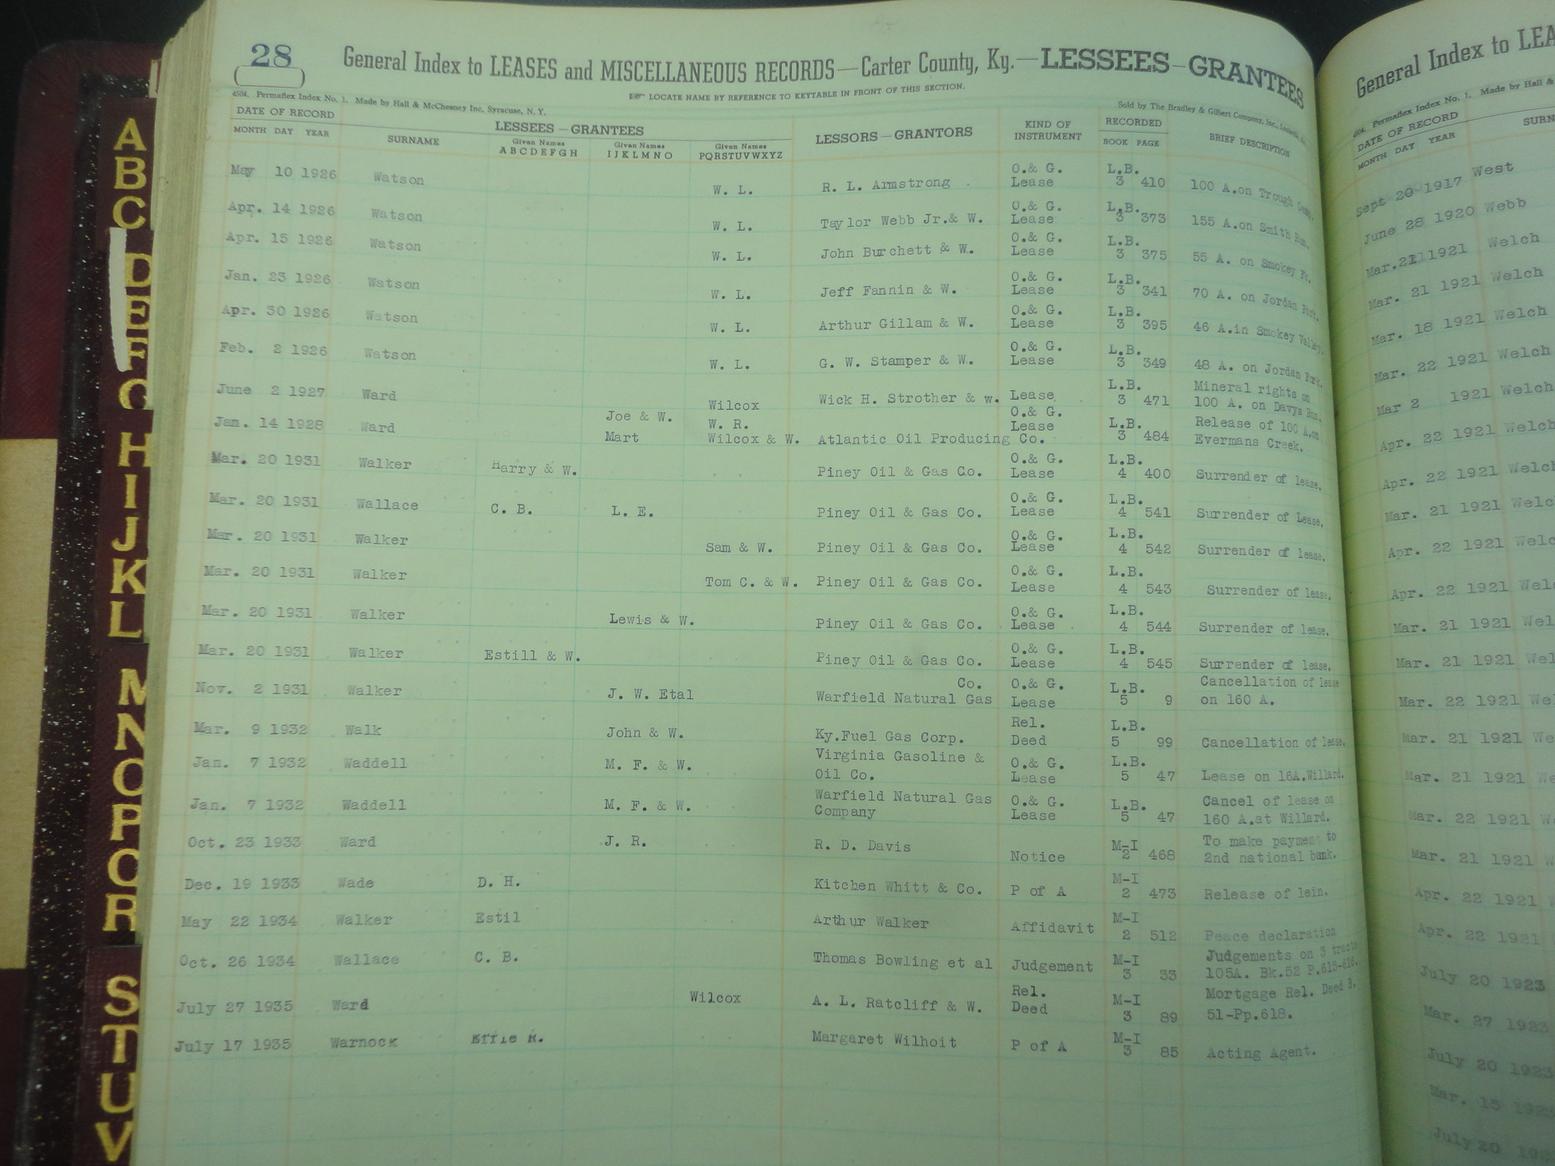 28
General Index to LEASES and MISCELLANEOUS RECORDS—Carter County, Ky.—LESSEES—GRANTEES
LOCATE NAME BY REFERENCE TO KEYTABLE IN FRONT OF THIS SECTION.
4504. Permaflex Index No. 1. Made by Hall & McChesney Inc. Syracuse, N. Y.
Sold by The Bradley & Gilbert Company, Inc.,
DATE OF RECORD LESSEES—GRANTEES LESSORS—GRANTORS KIND OF INSTRUMENT RECORDED BRIEF DESCRIPTION
MONTH DAY YEAR SURNAME Given Names A B C D E F G H Given Names I J K L M N O Given Names P Q R S T U V W X Y Z BOOK PAGE
May 10 1926 Watson W. L. R. L. Armstrong O.& G. Lease L.B. 3 410 100 A.on Trough
Apr. 14 1926 Watson W. L. Taylor Webb Jr.& W. O.& G. Lease L.B. 3 373 155 A.on Smith Run.
Apr. 15 1926 Watson W. L. John Burchett & W. O.& G. Lease L.B. 3 375 55 A. on Smokey
Jan. 23 1926 Watson W. L. Jeff Fannin & W. O.& G. Lease L.B. 3 341 70 A. on Jordan Fork.
Apr. 30 1926 Watson W. L. Arthur Gillam & W. O.& G. Lease L.B. 3 395 46 A.in Smokey Valley.
Feb. 2 1926 Watson W. L. G. W. Stamper & W. O.& G. Lease L.B. 3 349 48 A. on Jordan Fork.
June 2 1927 Ward Wilcox Wick H. Strother & w. Lease L.B. 3 471 Mineral rights on 100 A. on Davys Run.
Jan. 14 1928 Ward Joe & W. Mart W. R. Wilcox & W. Atlantic Oil Producing Co. O.& G. L.B. 3 484 Release of 100 A.on Evermans Creek.
Mar. 20 1931 Walker Harry & W. Piney Oil & Gas Co. O.& G. Lease L.B. 4 400 Surrender of lease.
Mar. 20 1931 Wallace C. B. L. E. Piney Oil & Gas Co. O.& G. Lease L.B. 4 541 Surrender of Lease.
Mar. 20 1931 Walker Sam & W. Piney Oil & Gas Co. O.& G. Lease L.B. 4 542 Surrender of lease.
Mar. 20 1931 Walker Tom C. & W. Piney Oil & Gas Co. O.& G. Lease L.B. 4 543 Surrender of lease.
Mar. 20 1931 Walker Lewis & W. Piney Oil & Gas Co. O.& G. Lease L.B. 4 544 Surrender of lease.
Mar. 20 1931 Walker Estill & W. Piney Oil & Gas Co. O.& G. Lease L.B. 4 545 Surrender of lease.
Nov. 2 1931 Walker J. W. Etal Warfield Natural Gas Co. O.& G. Lease L.B. 5 9 Cancellation of lease on 160 A.
Mar. 9 1932 Walk John & W. Ky.Fuel Gas Corp. Rel. Deed L.B. 5 99 Cancellation of lease.
Jan. 7 1932 Waddell M. F. & W. Virginia Gasoline & Oil Co. O.& G. Lease L.B. 5 47 Lease on 16A.Willard.
Jan. 7 1932 Waddell M. F. & W. Warfield Natural Gas Company O.& G. Lease L.B. 5 47 Cancel of lease on 160 A.at Willard.
Oct. 23 1933 Ward J. R. R. D. Davis Notice M-I 2 468 To make payment to 2nd national bank.
Dec. 19 1933 Wade D. H. Kitchen Whitt & Co. P of A M-I 2 473 Release of lein.
May 22 1934 Walker Estil Arthur Walker Affidavit M-I 2 512 Peace declaration
Oct. 26 1934 Wallace C. B. Thomas Bowling et al Judgement M-I 3 33 Judgements on 3 tracts 105A. Bk.52 P.615-616.
July 27 1935 Ward Wilcox A. L. Ratcliff & W. Rel. Deed M-I 3 89 Mortgage Rel. Deed B. 51-Pp.618.
July 17 1935 Warnock Effie R. Margaret Wilhoit P of A M-I 3 85 Acting Agent.
A
B
C
D
E
F
G
H
I
J
K
L
M
N
O
P
Q
R
S
T
U
V
General Index to LEA
4504. Permaflex Index No. 1. Made by Hall &
DATE OF RECORD
MONTH DAY YEAR SURN
Sept 20 1917 West
June 28 1920 Webb
Mar.21 1921 Welch
Mar. 21 1921 Welch
Mar. 18 1921 Welch
Mar. 22 1921 Welch
Mar 2 1921 Welch
Apr. 22 1921 Welch
Apr. 22 1921 Welch
Mar. 21 1921 Welc
Apr. 22 1921 Welc
Apr. 22 1921 Wel
Mar. 21 1921 Wel
Mar. 21 1921 Wel
Mar. 22 1921 We
Mar. 21 1921 We
Mar. 21 1921 We
Mar. 22 1921 W
Mar. 21 1921 W
Apr. 22 1921
Apr. 22 1921
July 20 1923
Mar. 27 1923
July 20 1923
Mar. 15 192
July 20 192